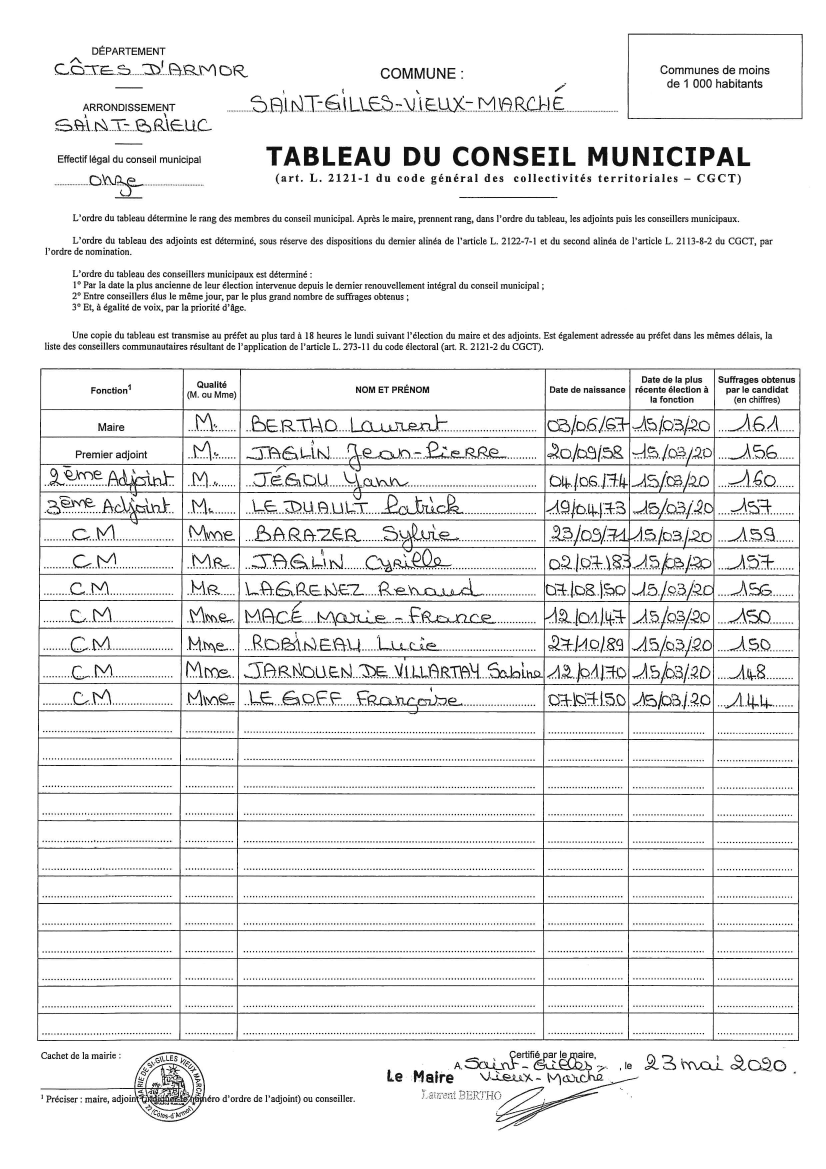 DÉPARTEMENT
CÔTES D'ARMOR
COMMUNE :
Communes de moins
de 1 000 habitants
ARRONDISSEMENT
SAINT-BRIEUC
SAINT-GILLES-VIEUX-MARCHÉ
Effectif légal du conseil municipal
onze
TABLEAU DU CONSEIL MUNICIPAL
(art. L. 2121-1 du code général des collectivités territoriales – CGCT)
L'ordre du tableau détermine le rang des membres du conseil municipal. Après le maire, prennent rang, dans l'ordre du tableau, les adjoints puis les conseillers municipaux.
L'ordre du tableau des adjoints est déterminé, sous réserve des dispositions du dernier alinéa de l'article L. 2122-7-1 et du second alinéa de l'article L. 2113-8-2 du CGCT, par
l'ordre de nomination.
L'ordre du tableau des conseillers municipaux est déterminé :
1° Par la date la plus ancienne de leur élection intervenue depuis le dernier renouvellement intégral du conseil municipal ;
2° Entre conseillers élus le même jour, par le plus grand nombre de suffrages obtenus ;
3° Et, à égalité de voix, par la priorité d'âge.
Une copie du tableau est transmise au préfet au plus tard à 18 heures le lundi suivant l'élection du maire et des adjoints. Est également adressée au préfet dans les mêmes délais, la
liste des conseillers communautaires résultant de l'application de l'article L. 273-11 du code électoral (art. R. 2121-2 du CGCT).
Fonction¹ Qualité (M. ou Mme) NOM ET PRÉNOM Date de naissance Date de la plus récente élection à la fonction Suffrages obtenus par le candidat (en chiffres)
Maire M. BERTHO Laurent 03/06/67 15/03/20 161
Premier adjoint M. JAGLIN Jean-Pierre 20/09/58 15/03/20 156
2ème Adjoint M. JÉGOU Yann 04/06/74 15/03/20 160
3ème Adjoint M. LE DUAULT Patrick 19/04/73 15/03/20 157
C.M Mme BARAZER Sylvie 23/09/71 15/03/20 159
C.M MR JAGLIN Cyrille 02/07/83 15/03/20 157
C.M MR LAGRENEZ Renaud 07/08/50 15/03/20 156
C.M Mme MACÉ Marie-France 12/01/47 15/03/20 150
C.M Mme ROBINEAU Lucie 27/10/89 15/03/20 150
C.M Mme JARNOUEN DE VILLARTAY Sabine 12/01/70 15/03/20 148
C.M Mme LE GOFF Françoise 07/07/50 15/03/20 144
Cachet de la mairie :
MAIRIE DE ST-GILLES VIEUX MARCHÉ
22 (Côtes-d'Armor)
Certifié par le maire,
A Saint-Gilles-Vieux-Marché, le 23 mai 2020.
Le Maire
Laurent BERTHO
¹ Préciser : maire, adjoint (indiquer le numéro d'ordre de l'adjoint) ou conseiller.